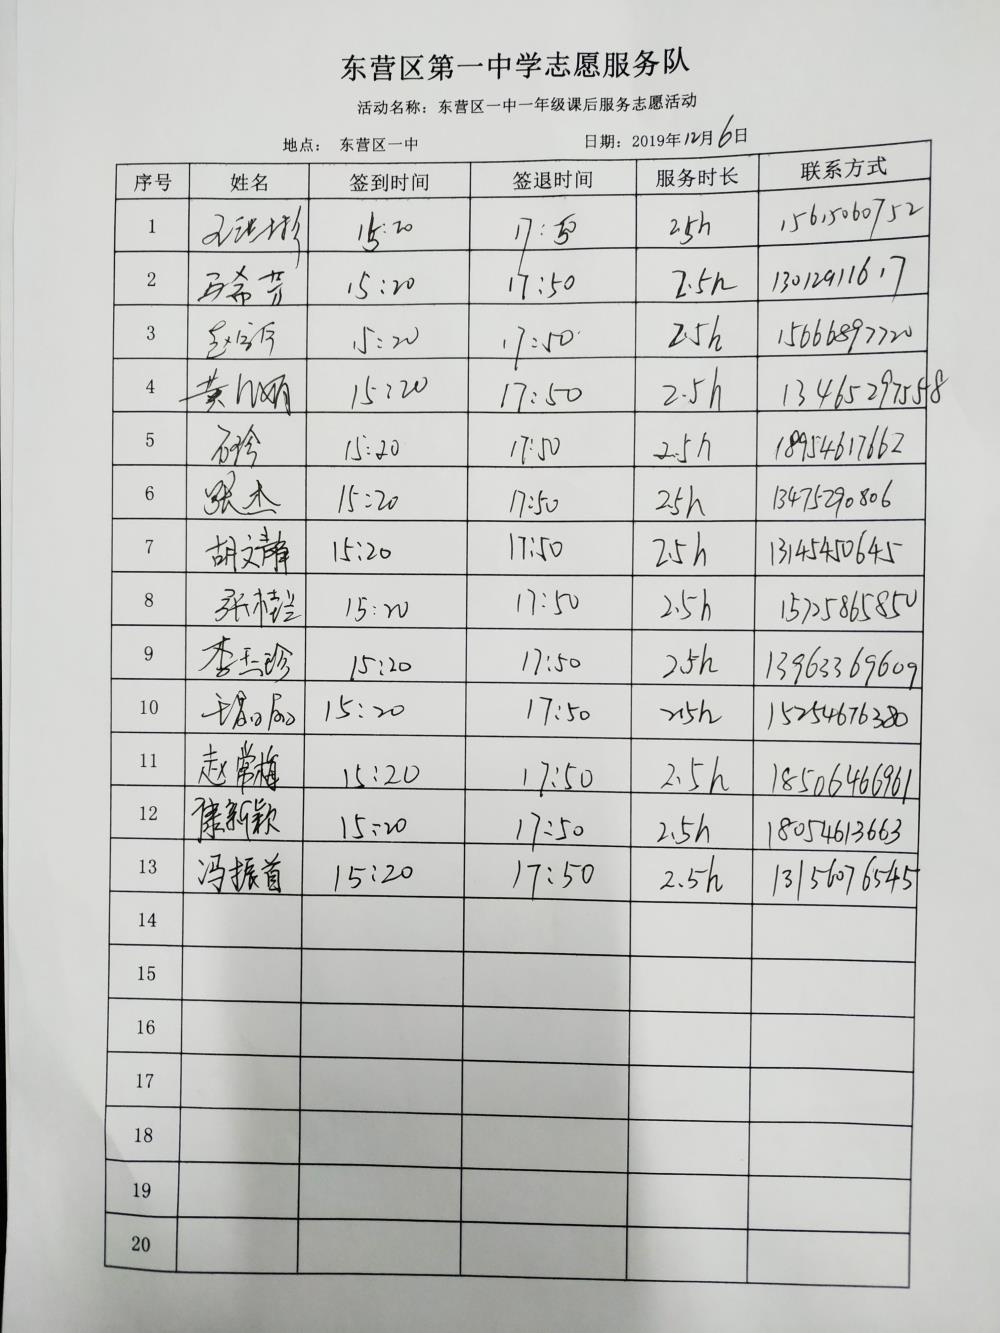 东营区第一中学志愿服务队
活动名称：东营区一中一年级课后服务志愿活动
地点： 东营区一中 日期：2019年12月6日
序号 姓名 签到时间 签退时间 服务时长 联系方式
1 15:20 17:50 2.5h 15615060752
2 15:20 17:50 2.5h 13012911617
3 15:20 17:50 2.5h 15666897720
4 15:20 17:50 2.5h 13465297558
5 石珍 15:20 17:50 2.5h 18954617662
6 张杰 15:20 17:50 2.5h 13475290806
7 胡文静 15:20 17:50 2.5h 13145450645
8 张桂兰 15:20 17:50 2.5h 15725865850
9 李玉珍 15:20 17:50 2.5h 13963369609
10 15:20 17:50 2.5h 15254676380
11 赵常梅 15:20 17:50 2.5h 18506466961
12 新颖 15:20 17:50 2.5h 18054613663
13 冯振首 15:20 17:50 2.5h 13156076545
14
15
16
17
18
19
20